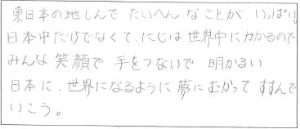 東日本の地しんで たいへん なことが いっぱい。
日本中だけでなくて、にじは 世界中にかかるので
みんな 笑顔で 手をつないで 明かるい
日本に、世界になるように 夢にむかって すすんで
いこう。